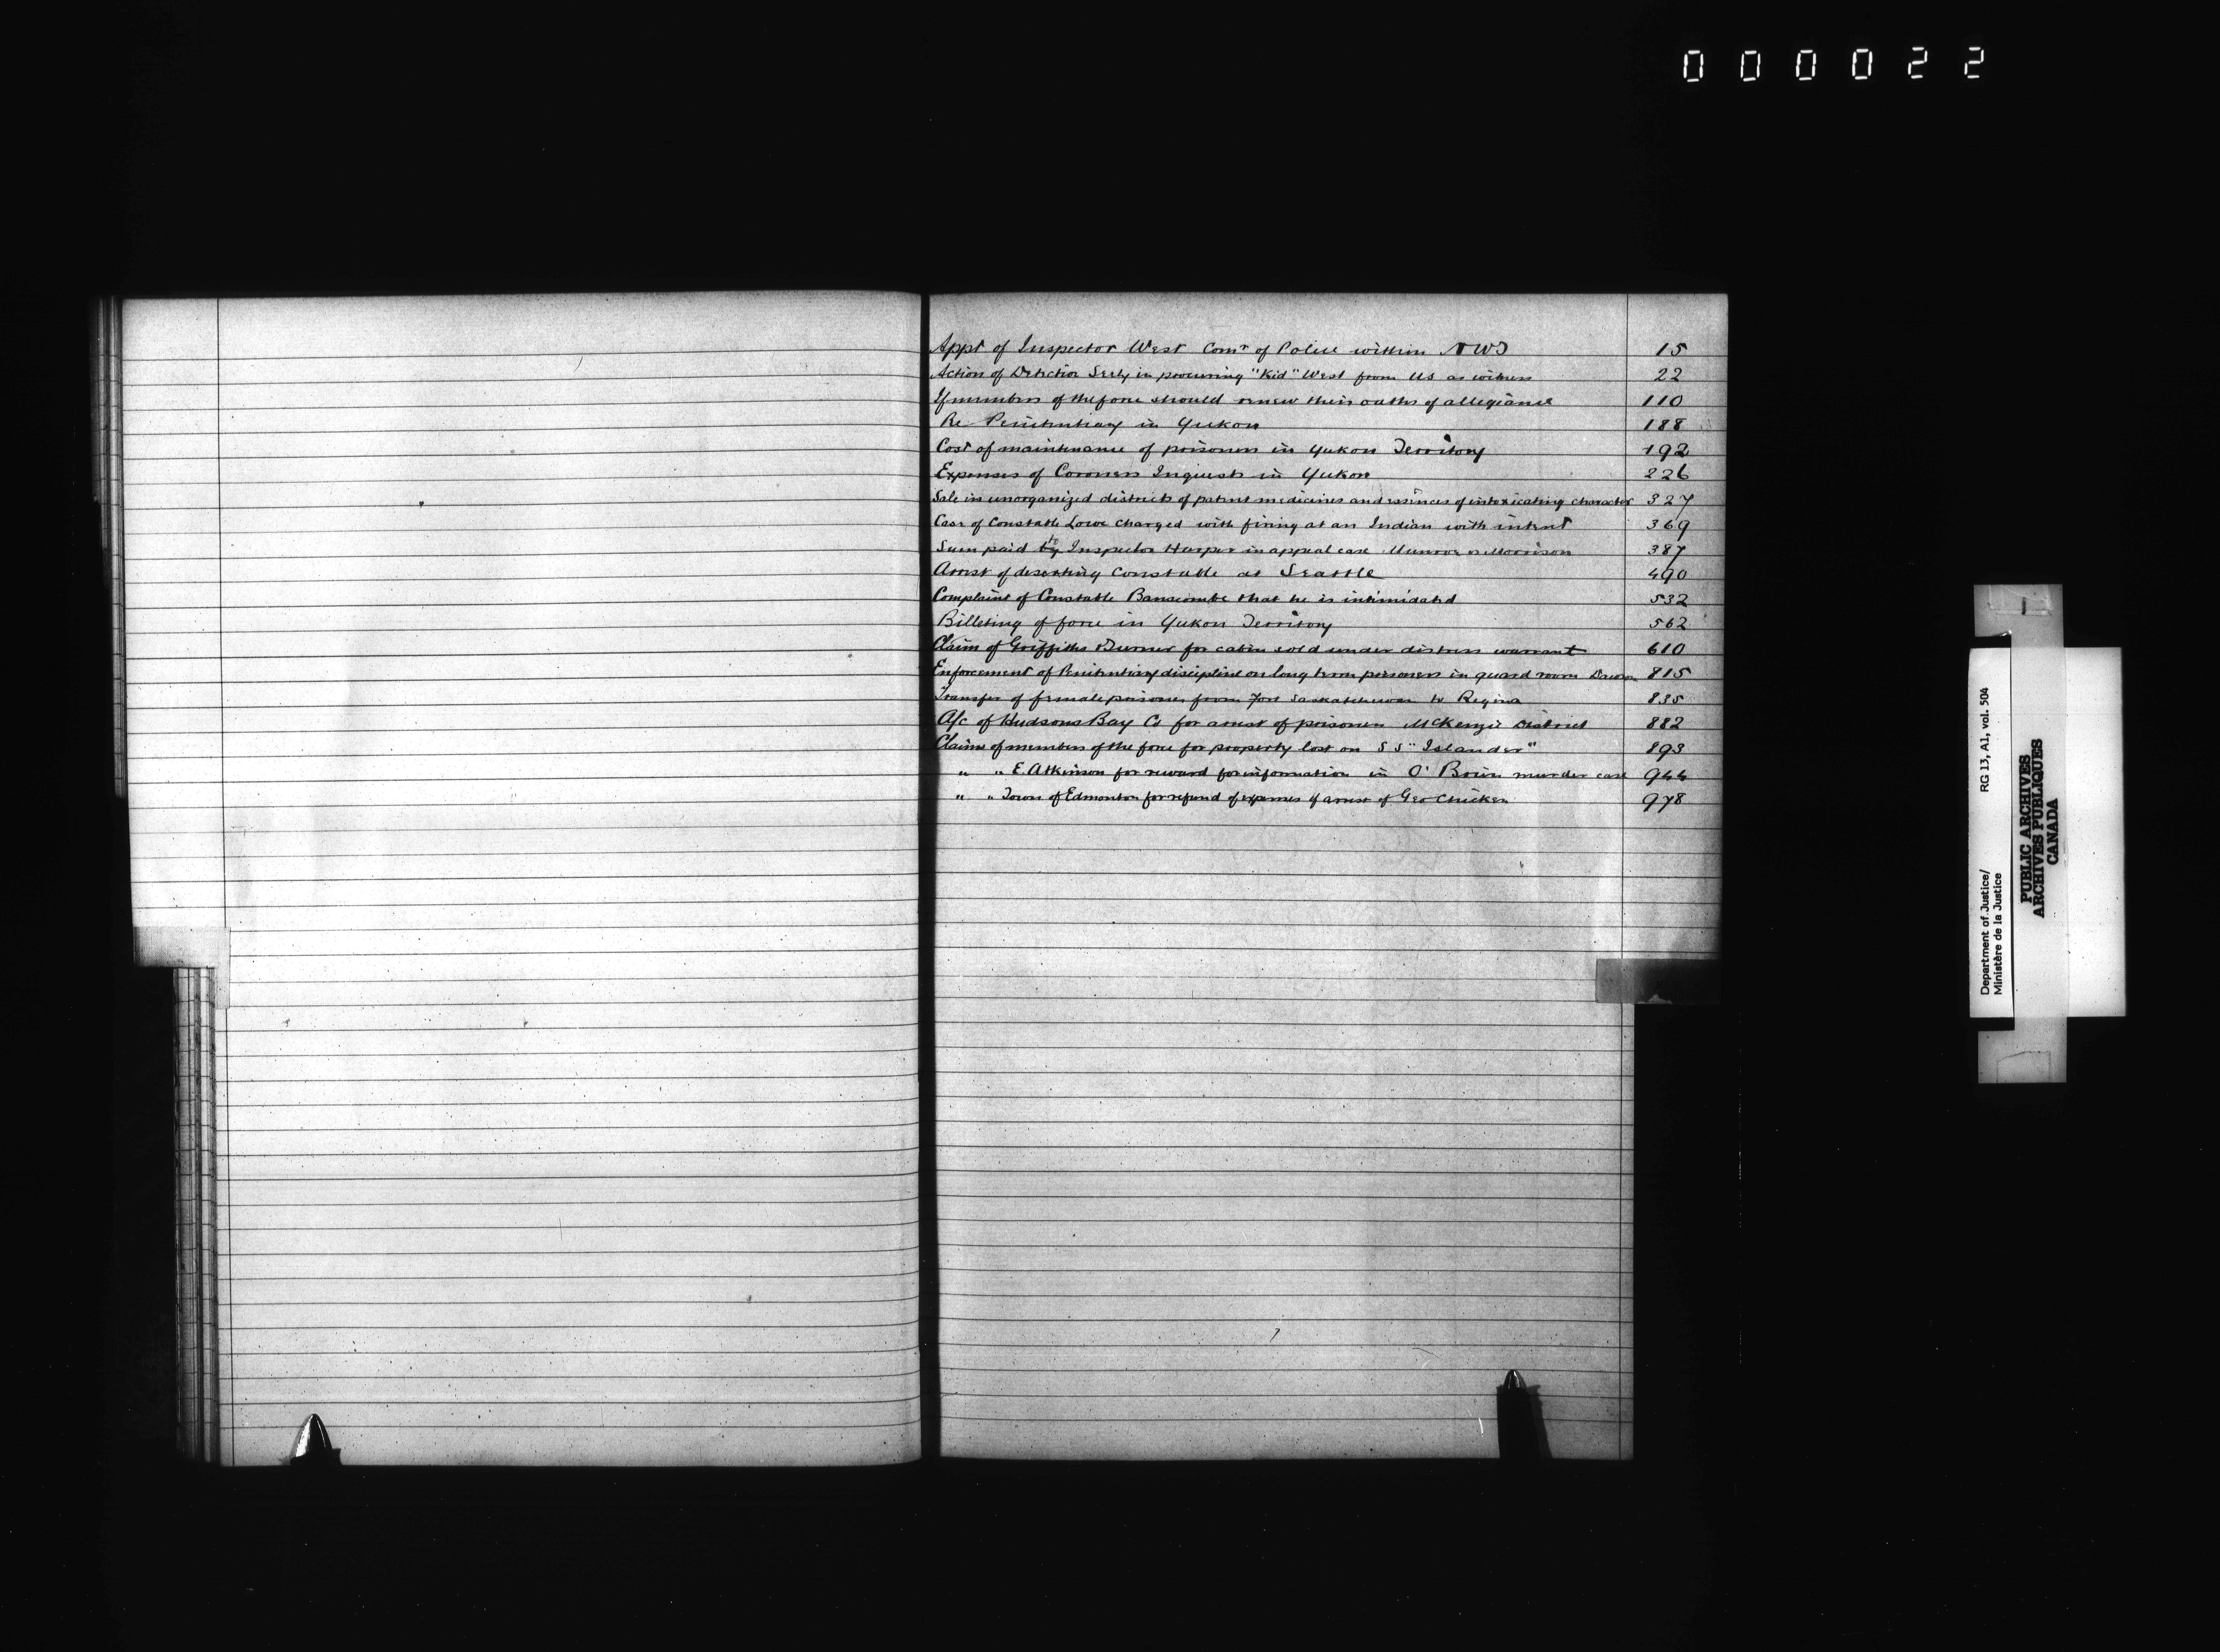 000022
Appt of Inspector West Comr of Police within NWT 15
Action of Detective Seely in procuring "Kid" West from US as witness 22
If members of the force should renew their oaths of allegiance 110
Re Penitentiary in Yukon 188
Cost of maintenance of prisoners in Yukon Territory 192
Expenses of Coroners Inquests in Yukon 226
Sale in unorganized districts of patent medicines and essences of intoxicating character 327
Case of Constable Lowe charged with firing at an Indian with intent 369
Sum paid by to Inspector Harper in appeal case Munroe vs Morrison 387
Arrest of deserting Constable at Seattle 490
Complaint of Constable Banscombe that he is intimidated 532
Billeting of force in Yukon Territory 562
Claim of Griffiths & Turner for cabin sold under distress warrant 610
Enforcement of Penitentiary discipline on long term prisoners in guard room Dawson 815
Transfer of female prisoner from Fort Saskatchewan to Regina 835
A/c of Hudsons Bay Co for arrest of prisoners McKenzie District 882
Claims of members of the force for property lost on SS "Islander" 893
" " E. Atkinson for reward for information in O'Brien murder case 944
" " Town of Edmonton for refund of expenses of arrest of Geo Chicken 978
Department of Justice/ RG 13, A1, vol. 504
Ministère de la Justice
PUBLIC ARCHIVES
ARCHIVES PUBLIQUES
CANADA